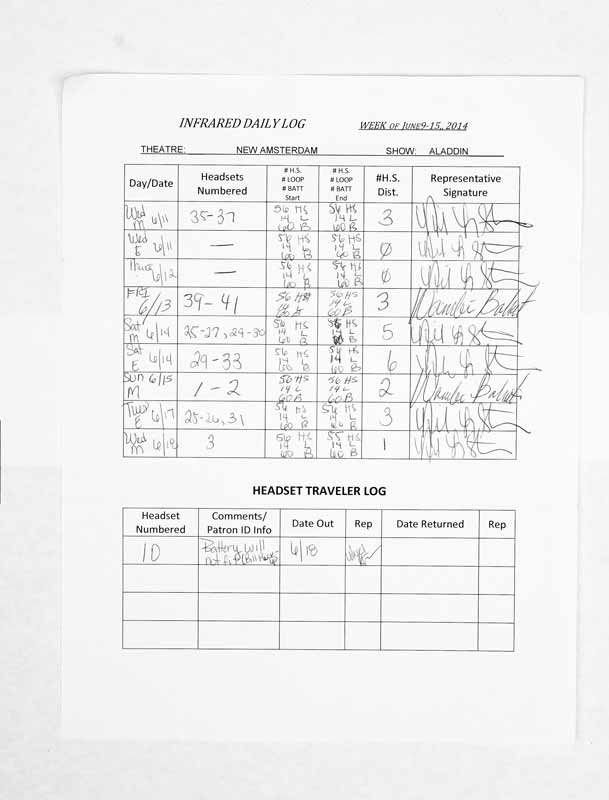 INFRARED DAILY LOG WEEK OF JUNE9-15,, 2014
THEATRE: NEW AMSTERDAM SHOW: ALADDIN
Day/Date Headsets Numbered # H.S. # LOOP # BATT Start # H.S. # LOOP # BATT End #H.S. Dist. Representative Signature
Wed M 6/11 35-37 56 HS 14 L 60 B 56 HS 14 L 60 B 3
Wed E 6/11 — 56 HS 14 L 60 B 56 HS 14 L 60 B 0
Thurs 6/12 — 56 HS 14 L 60 B 56 HS 14 L 60 B 0
FRI 6/13 39-41 56 HS 14 L 60 B 56 HS 14 L 60 B 3
Sat M 6/14 25-27, 29-30 56 HS 14 L 60 B 56 HS 14 L 60 B 5
Sat E 6/14 29-33 56 HS 14 L 60 B 56 HS 14 L 60 B 6
SUN M 6/15 1-2 56 HS 14 L 60 B 56 HS 14 L 60 B 2
Tues E 6/17 25-26, 31 56 HS 14 L 60 B 56 HS 14 L 60 B 3
Wed M 6/18 3 56 HS 14 L 60 B 55 HS 14 L 60 B 1
HEADSET TRAVELER LOG
Headset Numbered Comments/ Patron ID Info Date Out Rep Date Returned Rep
10 Battery will not 6/18